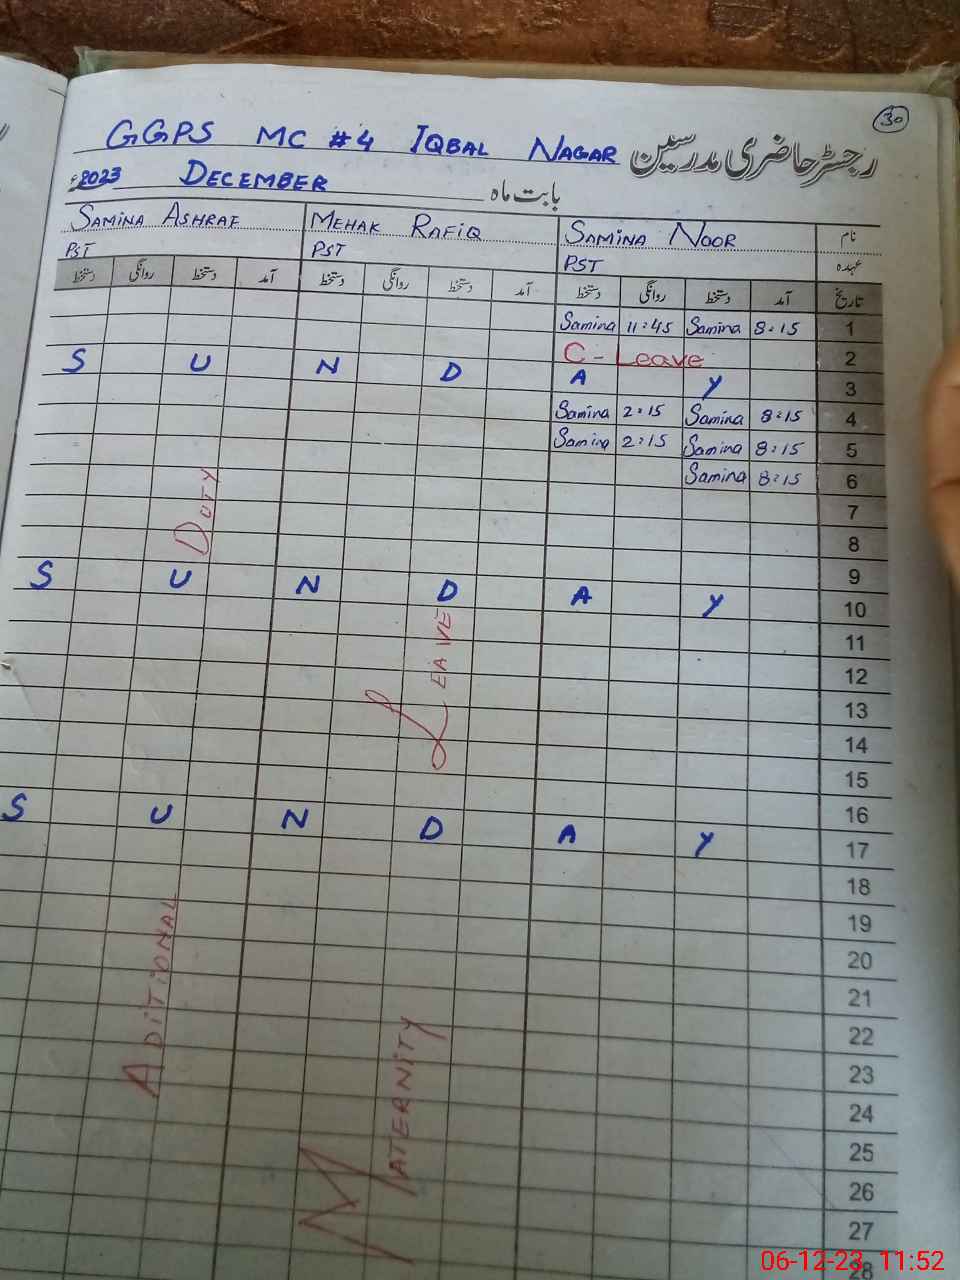 30
GGPS MC #4 IQBAL NAGAR رجسٹر حاضری مدرسین
2023ء DECEMBER بابت ماہ
SAMINA ASHRAF MEHAK RAFIQ SAMINA NOOR نام
PST PST PST عہدہ
دستخط روانگی دستخط آمد دستخط روانگی دستخط آمد دستخط روانگی دستخط آمد تاریخ
Samina 11:45 Samina 8:15 1
C-Leave 2
S U N D A Y 3
Samina 2:15 Samina 8:15 4
Samina 2:15 Samina 8:15 5
Samina 8:15 6
7
8
9
S U N D A Y 10
11
12
13
14
15
16
S U N D A Y 17
18
19
20
21
22
23
24
25
26
27
28
ADITIONAL DUTY
MATERNITY LEAVE
06-12-23 11:52